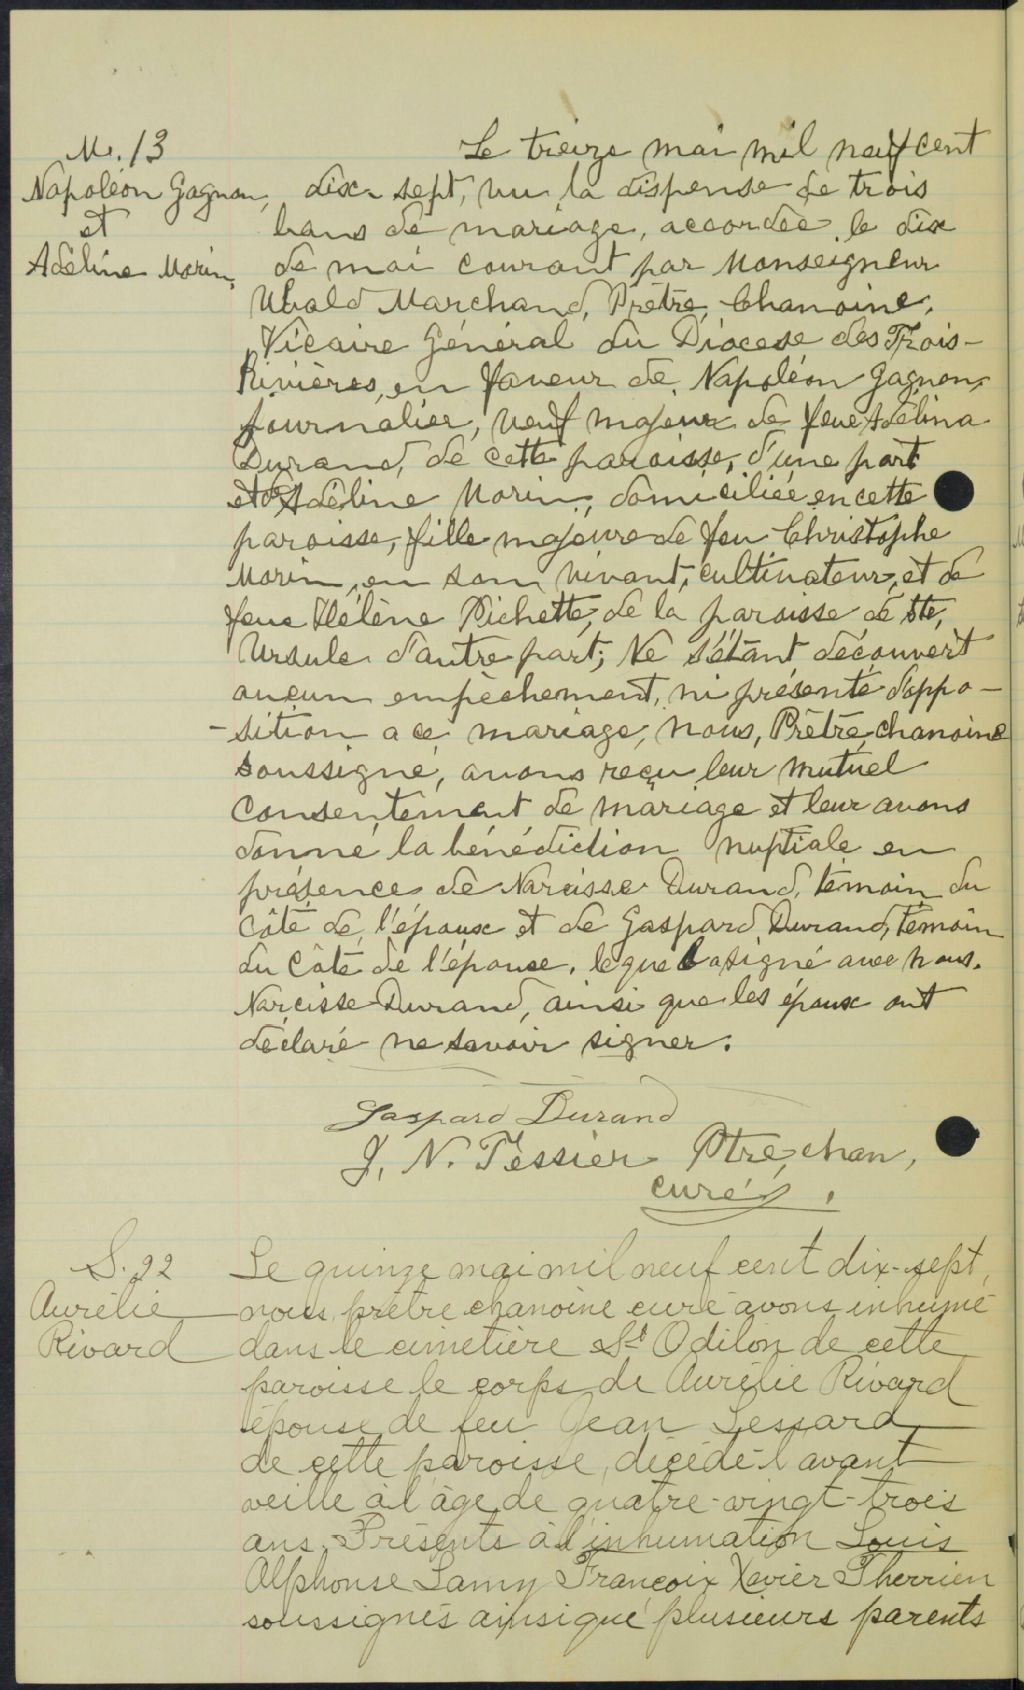 M. 13
Napoléon Gagnon,
et
Adéline Morin.
Le treize mai mil neuf cent
dix-sept, vu la dispense de trois
bans de mariage, accordée le dix
de mai courant par Monseigneur
Ubald Marchand, Prêtre, Chanoine,
Vicaire Général du Diocese des Trois-
Rivières, en faveur de Napoléon Gagnon,
journalier, veuf majeur de feue Adélina
Durand, de cette paroisse, d'une part
et d'Adéline Morin, domiciliée en cette
paroisse, fille majeure de feu Christophe
Morin, en son vivant, cultivateur, et de
feue Hélène Pichette, de la paroisse de Ste,
Ursule d'autre part; Ne s'étant découvert
aucun empêchement, ni présenté d'oppo-
-sition a ce mariage, nous, Prêtre, chanoine
soussigné, avons reçu leur mutuel
consentement de mariage et leur avons
donné la bénédiction nuptiale en
présence de Narcisse Durand, témoin du
côté de l'époux et de Gaspard Durand, témoin
du côté de l'épouse, lequel a signé avec nous.
Narcisse Durand, ainsi que les époux ont
déclaré ne savoir signer.
Gaspard Durand
J. N. Tessier Ptre, chan,
curé.
S. 22
Aurélie
Rivard
Le quinze mai mil neuf cent dix-sept,
nous, prêtre chanoine curé avons inhumé
dans le cimetière St Odilon de cette
paroisse le corps de Aurélie Rivard
épouse de feu Jean Lessard
de cette paroisse, décédé l'avant
veille à l'âge de quatre-vingt-trois
ans. Présents à l'inhumation Louis
Alphonse Lamy François Xavier Therrien
soussignés ainsi que plusieurs parents